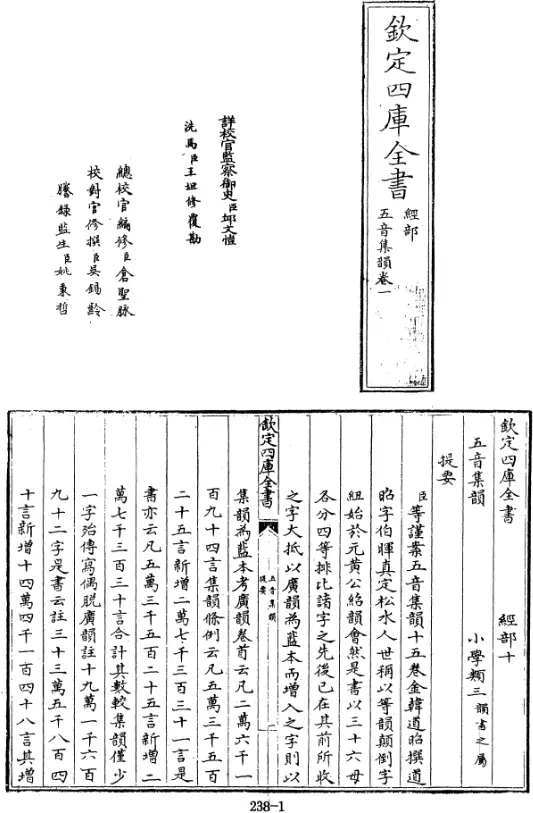 欽定四庫全書
經部
五音集韻卷一
詳校官監察御史臣邱文愷
洗馬臣王坦修覆勘
總校官編修臣倉聖脉
校對官修撰臣吳錫齡
謄錄監生臣姚東哲
欽定四庫全書 經部十
五音集韻 小學類三韻書之屬
提要
臣等謹案五音集韻十五卷金韓道昭撰道
昭字伯暉真定松水人世稱以等韻顛倒字
紐始於元黃公紹韻會然是書以三十六母
各分四等排比諸字之先後已在其前所收
之字大抵以廣韻為藍本而增入之字則以
欽定四庫全書
五音集韻
提要
一
集韻為藍本考廣韻卷首云凡二萬六千一
百九十四言集韻條例云凡五萬三千五百
二十五言新增二萬七千三百三十一言是
書亦云凡五萬三千五百二十五言新增二
萬七千三百三十言合計其數較集韻僅少
一字殆傳寫偶脫廣韻註十九萬一千六百
九十二字是書云註三十三萬五千八百四
十言新增十四萬四千一百四十八言其增
238-1